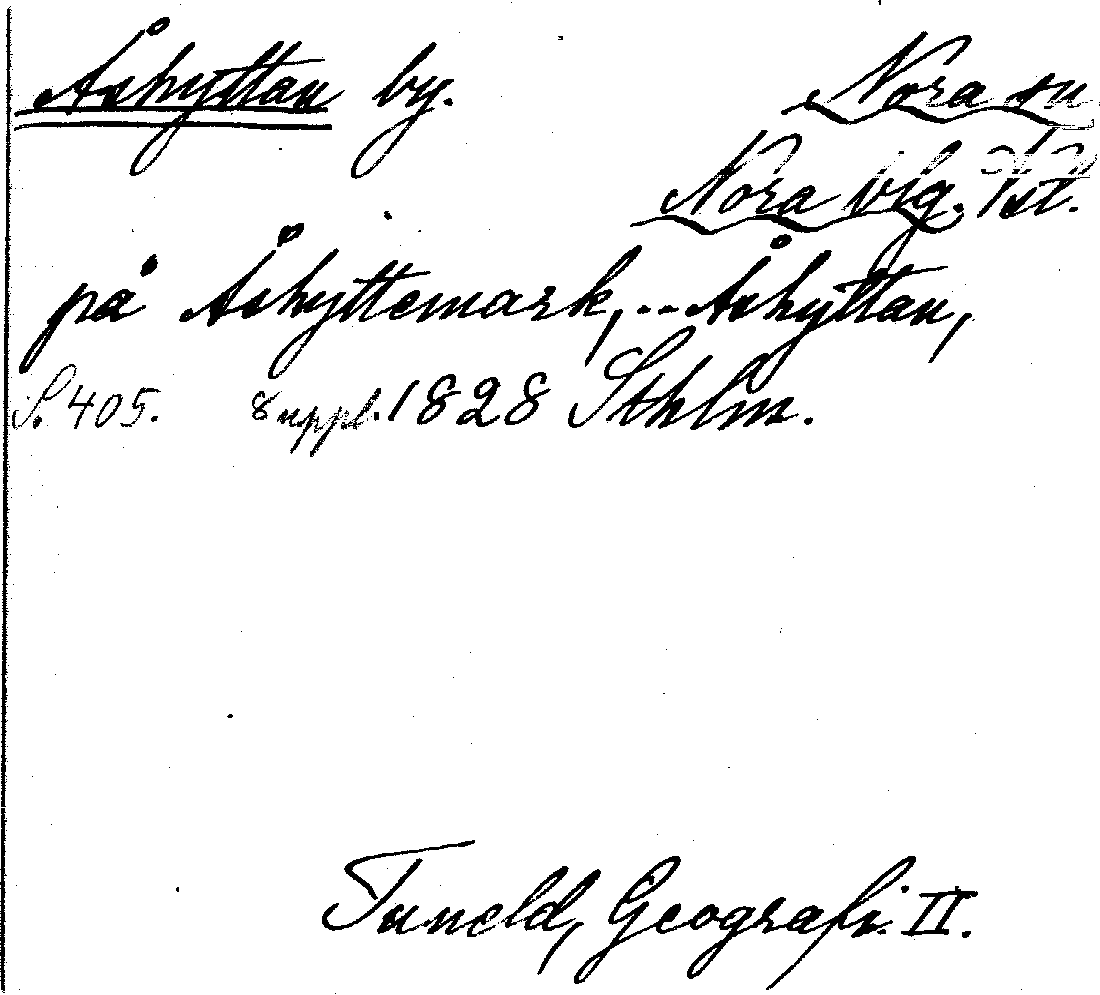 Åshyttan by. Nora sn
Nora bsg. Vstl.
på Åshyttemark, .. Åshyttan,
S. 405. 8 uppl. 1828 Sthlm.
Tuneld, Geografi. II.